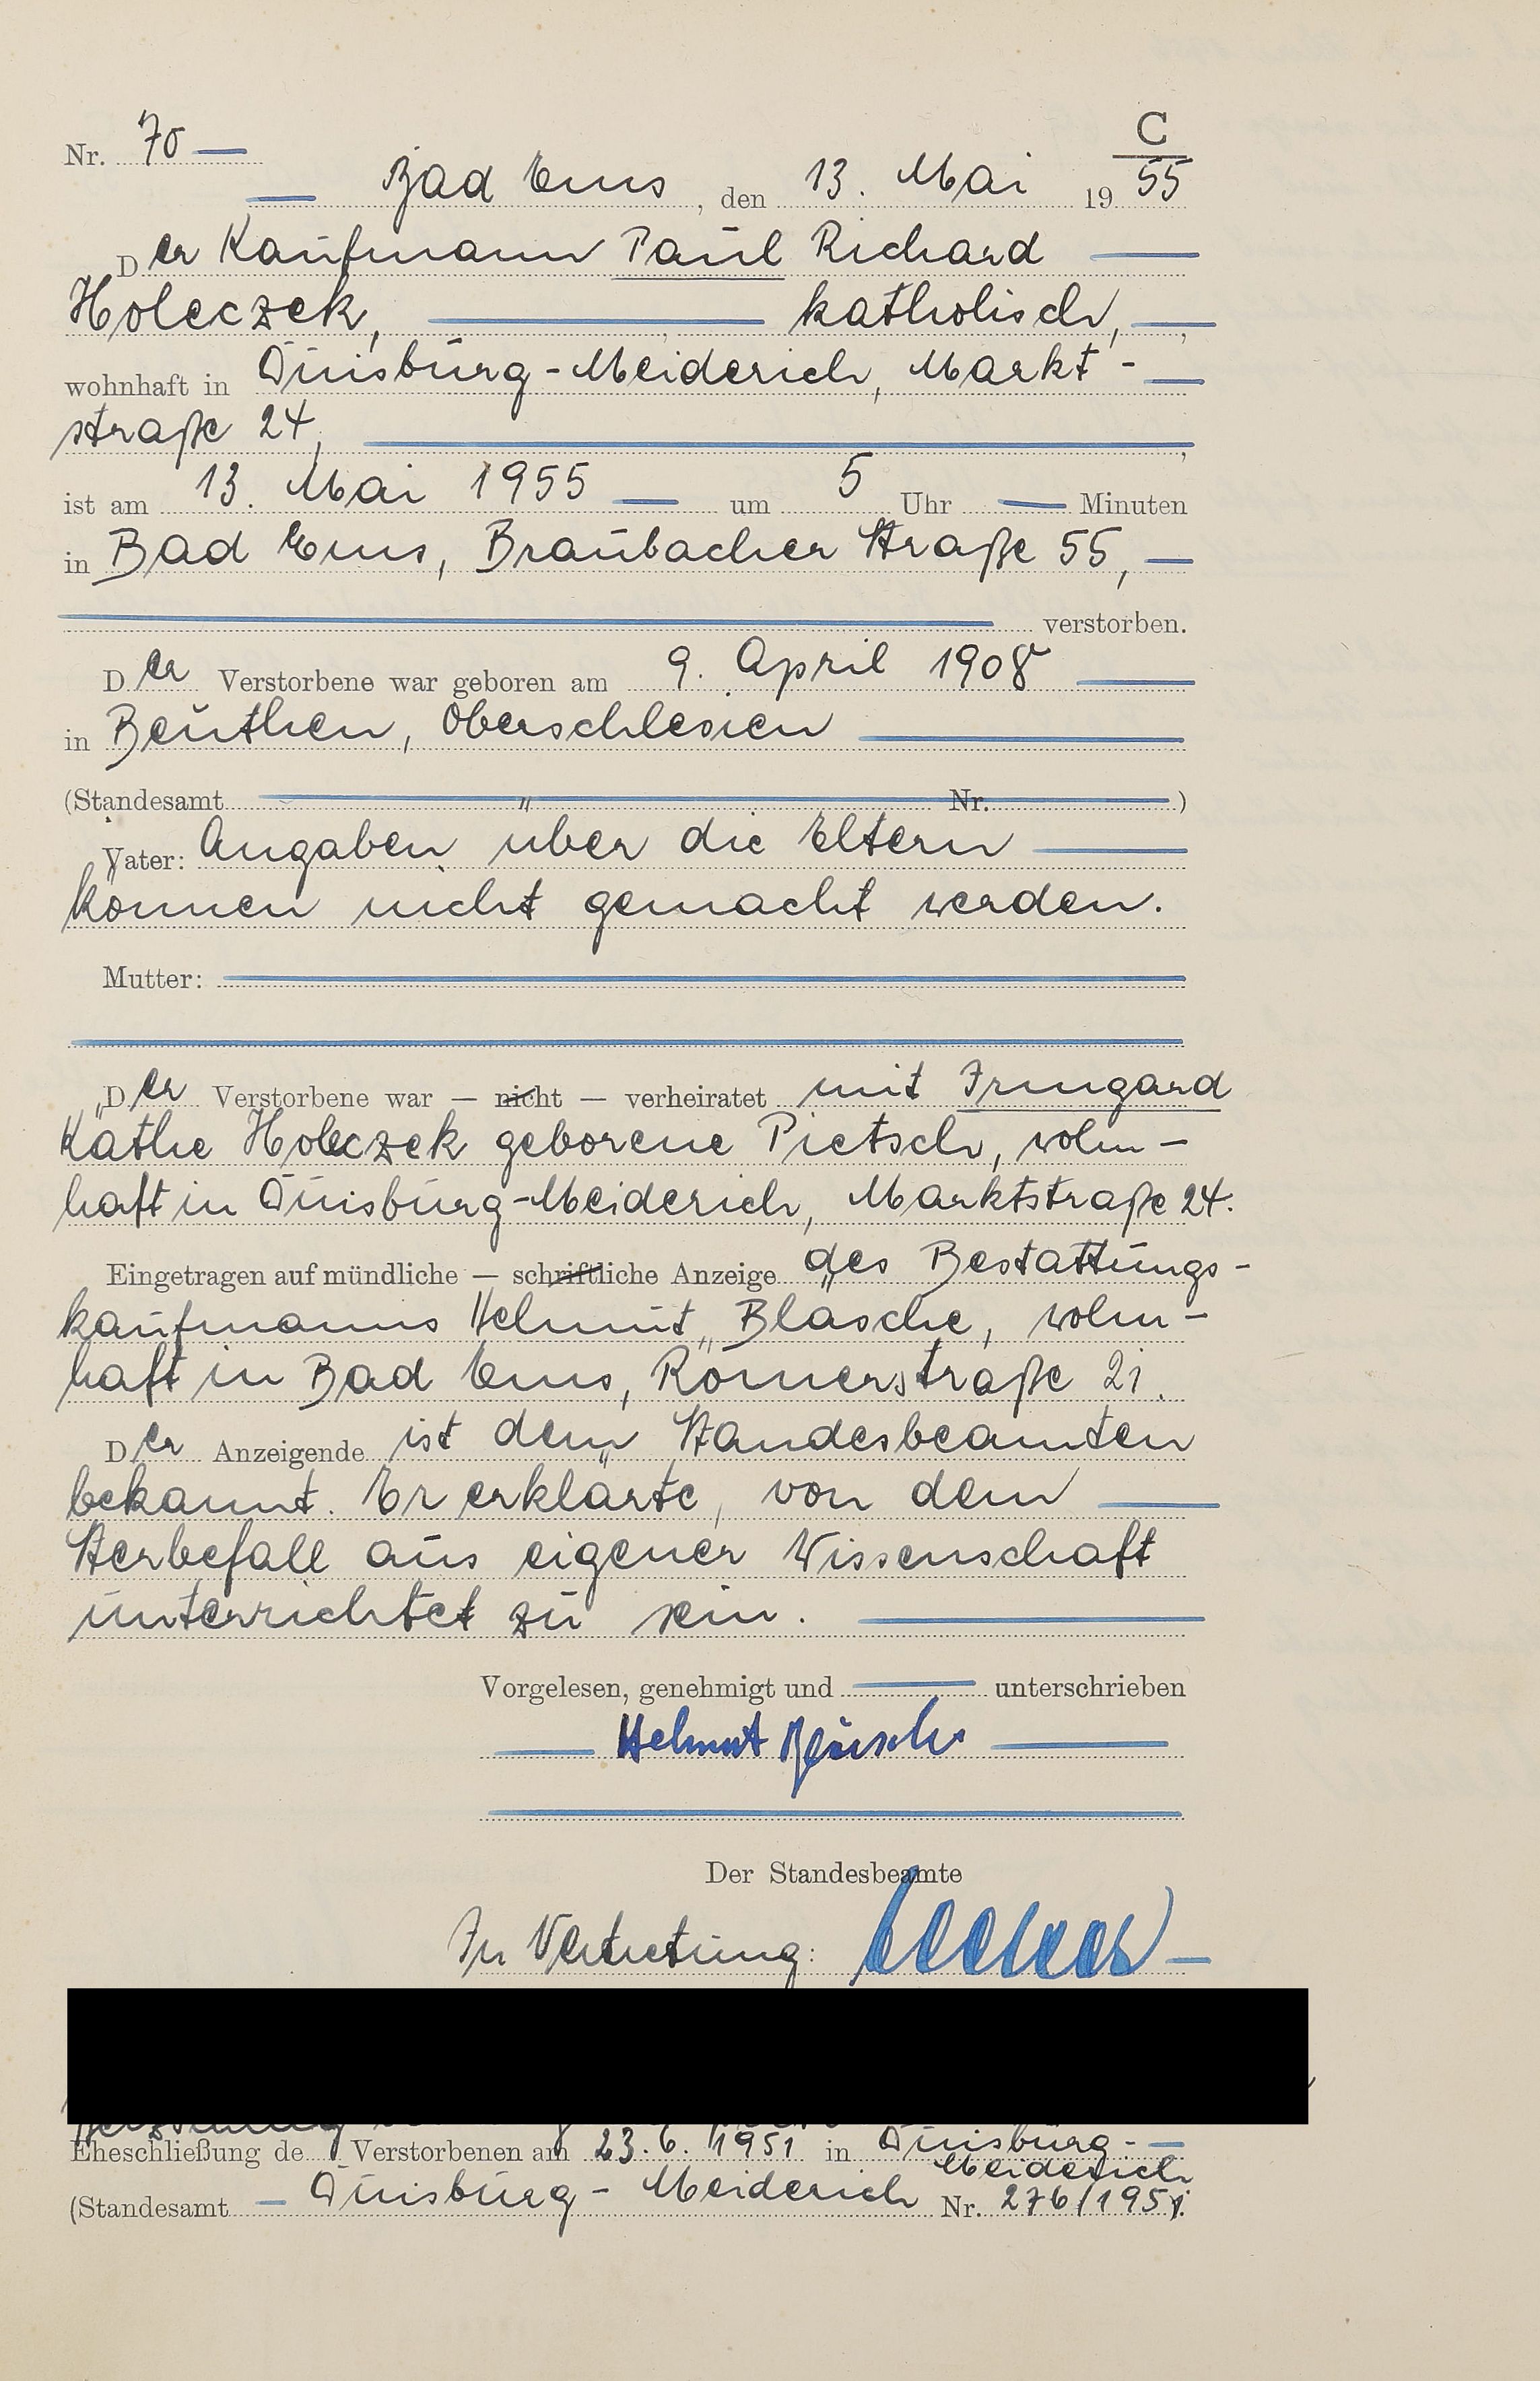 C
Nr. 70 —
— Bad Ems, den 13. Mai 1955
Der Kaufmann Paul Richard —
Holeczek, — katholisch, —,
wohnhaft in Duisburg-Meiderich, Markt- —
straße 24, —,
ist am 13. Mai 1955 — um 5 Uhr — Minuten
in Bad Ems, Braubacher Straße 55, —
— verstorben.
Der Verstorbene war geboren am 9. April 1908 —
in Beuthen, Oberschlesien —
(Standesamt — Nr. —)
Vater: Angaben über die Eltern —
können nicht gemacht werden.
Mutter: —
Der Verstorbene war — nicht — verheiratet mit Irmgard
Käthe Holeczek geborene Pietsch, wohn-
haft in Duisburg-Meiderich, Marktstraße 24.
Eingetragen auf mündliche — schriftliche Anzeige des Bestattungs-
kaufmanns Helmut Bläsche, wohn-
haft in Bad Ems, Römerstraße 21.
Der Anzeigende ist dem Standesbeamten
bekannt. Er erklärte, von dem —
Sterbefall aus eigener Wissenschaft
unterrichtet zu sein. —
Vorgelesen, genehmigt und — unterschrieben
— Helmut Bläsche —
Der Standesbeamte
In Vertretung: —
Eheschließung de Verstorbenen am 23.6.1951 in Duisburg- —
Meiderich
(Standesamt — Duisburg-Meiderich Nr. 276/1951.